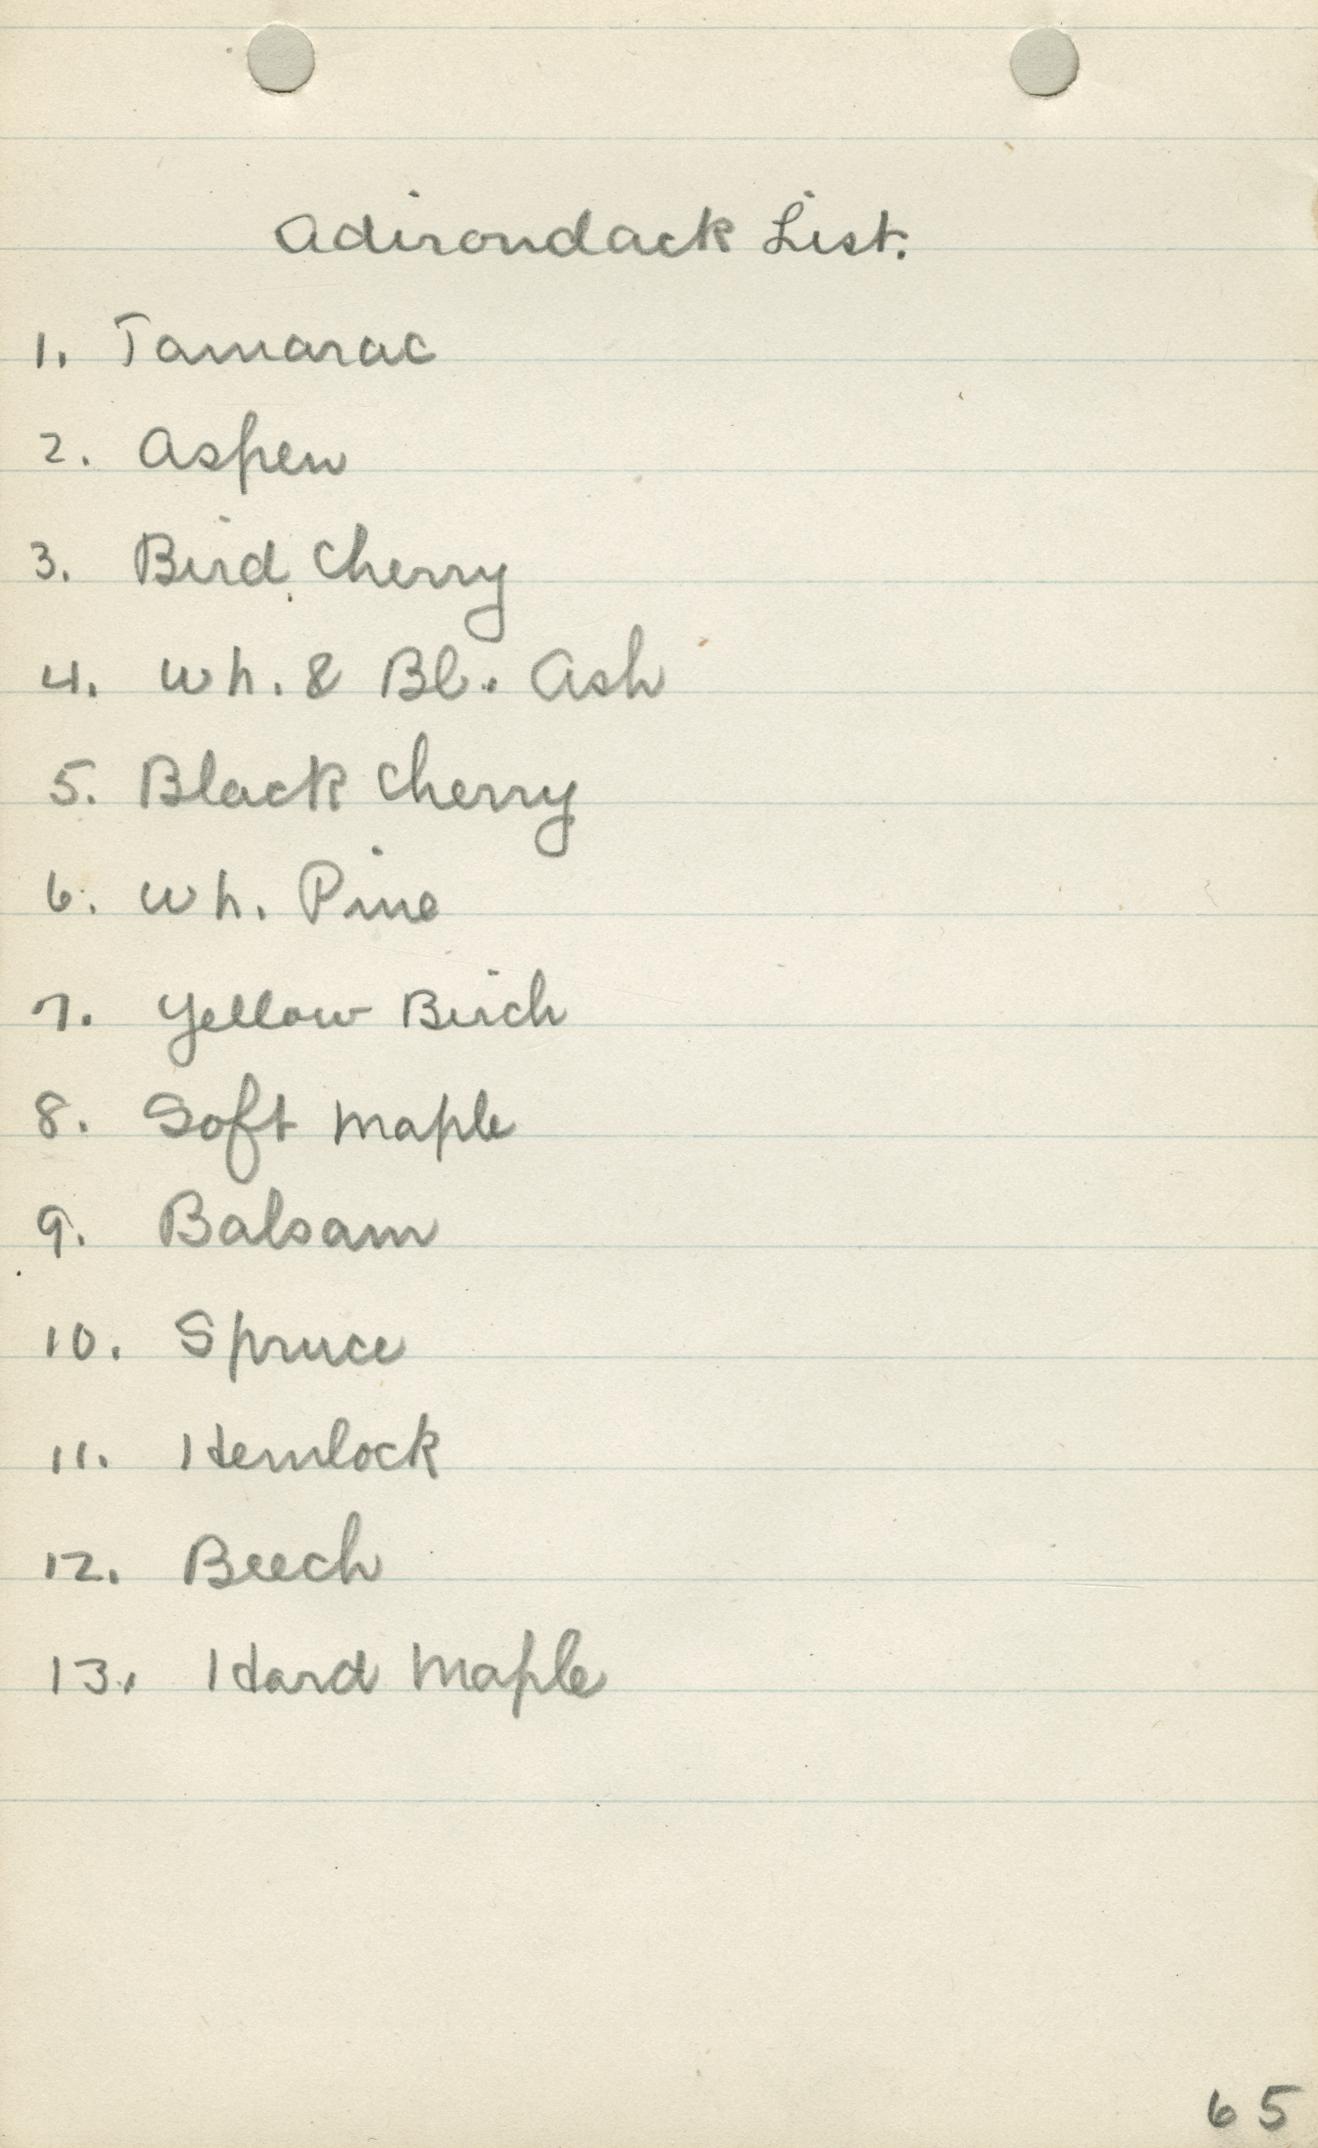 Adirondack List.
1. Tamarac
2. Aspen
3. Bird Cherry
4. Wh. & Bl. Ash
5. Black Cherry
6. Wh. Pine
7. Yellow Birch
8. Soft Maple
9. Balsam
10. Spruce
11. Hemlock
12. Beech
13. Hard Maple
65